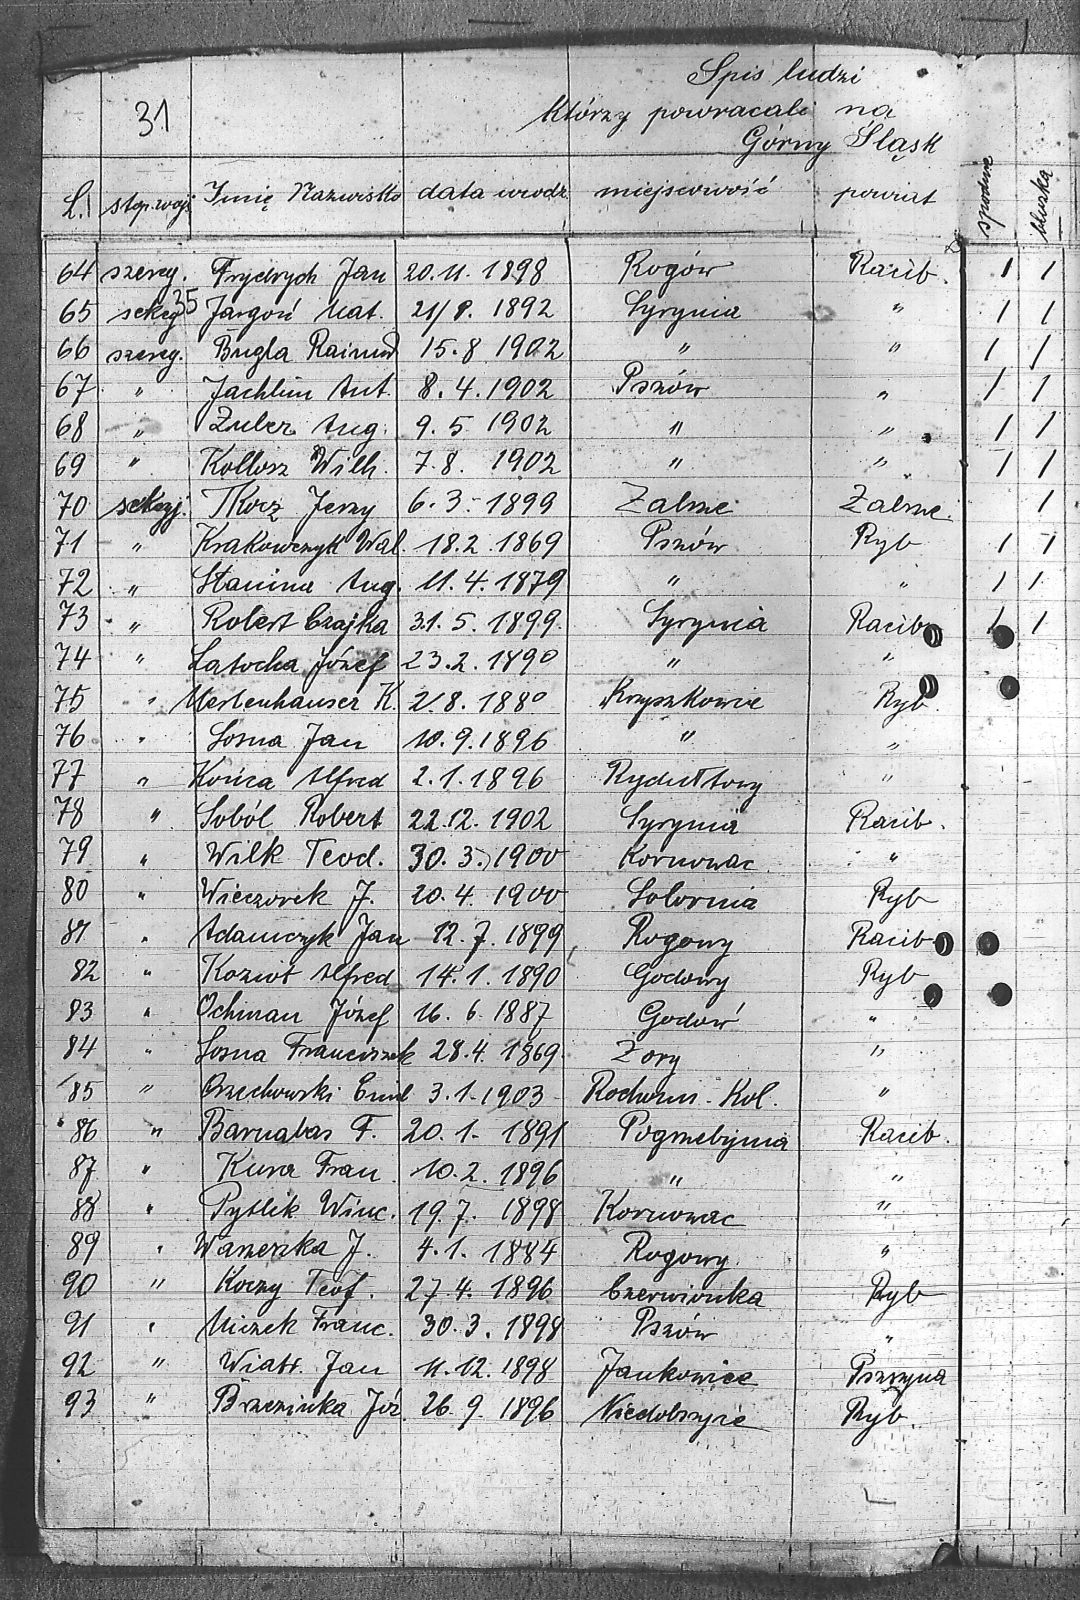 31
Spis ludzi
którzy powracali na
Górny Śląsk
L. stop. wojs Imię Nazwisko data urodz. miejscowość powiat spodnie bluzka
64 szereg. Frydrych Jan 20.11.1898 Rogów Racib. 1 1
65 sekcy 35 Jargoń Mat. 21/8. 1892 Syrynia " 1 1
66 szereg. Bugla Raimund 15.8 1902 " " 1 1
67 " Jachlim Ant. 8.4.1902 Pszów " 1 1
68 " Zuber Aug. 9.5 1902 " " 1 1
69 " Kollosz Wilh. 7.8. 1902 " " 1 1
70 sekcyj. Tkorz Jerzy 6.3.1899 Zabrze Zabrze 1
71 " Krakowczyk Wal. 18.2.1869 Pszów Ryb 1 1
72 " Stanina Aug. 11.4.1879 " " 1 1
73 " Robert Czajka 31.5.1899 Syrynia Racib 1 1
74 " Latocha Józef 23.2.1890 " "
75 " Mertenhauser K. 21.8.1880 Krzyszkowice Ryb.
76 " Sosna Jan 10.9.1896 " "
77 " Końca Alfred 2.1.1896 Rydułtowy "
78 " Soból Robert 22.12.1902 Syrynia Racib.
79 " Wilk Teod. 30.3.1900 Kornowac "
80 " Wieczorek J. 20.4.1900 Ryb
81 " Adamczyk Jan 12.7.1899 Rogowy Racib
82 " Kozioł Alfred 14.1.1890 Godowy Ryb
83 " Ochman Józef 16.6.1887 Godów "
84 " Sosna Franciszek 28.4.1869 Zory "
85 " Orzechowski Emil 3.1.1903 Kol. "
86 " Barnabas F. 20.1.1891 Pogrzebynia Racib.
87 " Kura Fran. 10.2.1896 " "
88 " Pytlik Winc. 19.7.1898 Kornowac "
89 " J. 4.1.1884 Rogowy "
90 " Koczy Teof. 27.4.1896 Czerwionka Ryb
91 " Miczek Franc. 30.3.1898 Pszów "
92 " Wiatr. Jan 11.12.1898 Jankowice Pszczyna
93 " Brzezinka Józ 26.9.1896 Niedobczyce Ryb.